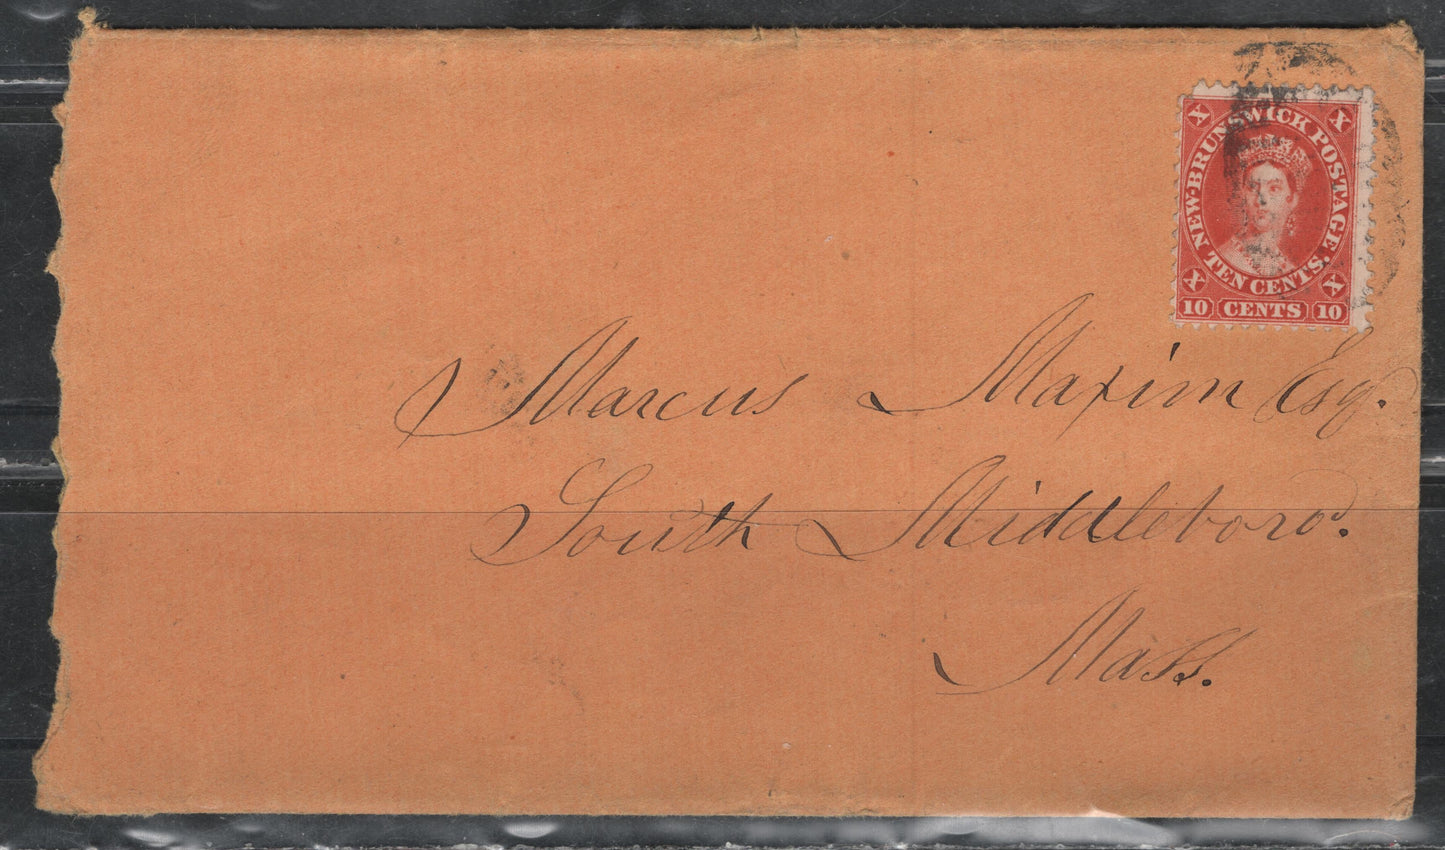 X X
NEW-BRUNSWICK POSTAGE.
TEN CENTS.
X X
10 CENTS 10
Marcus Maxim Esq.
South Middleboro.
Mass.